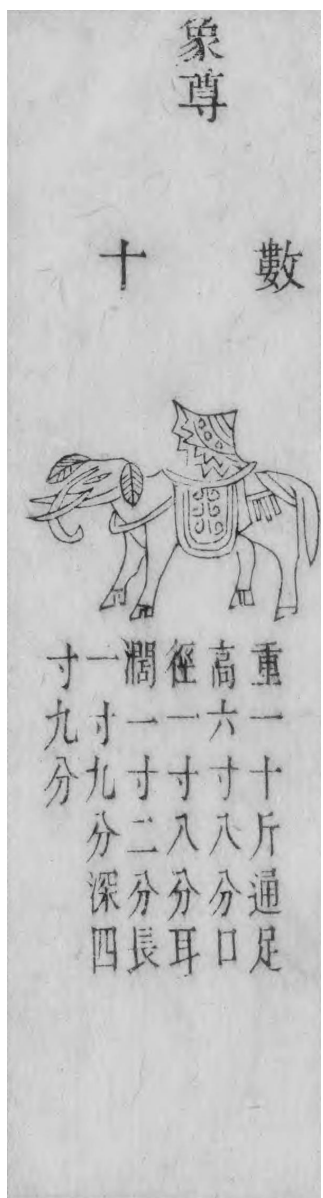 象尊
數
十
重一十斤通足
高六寸八分口
徑一寸八分耳
濶一寸二分長
一寸九分深四
寸九分